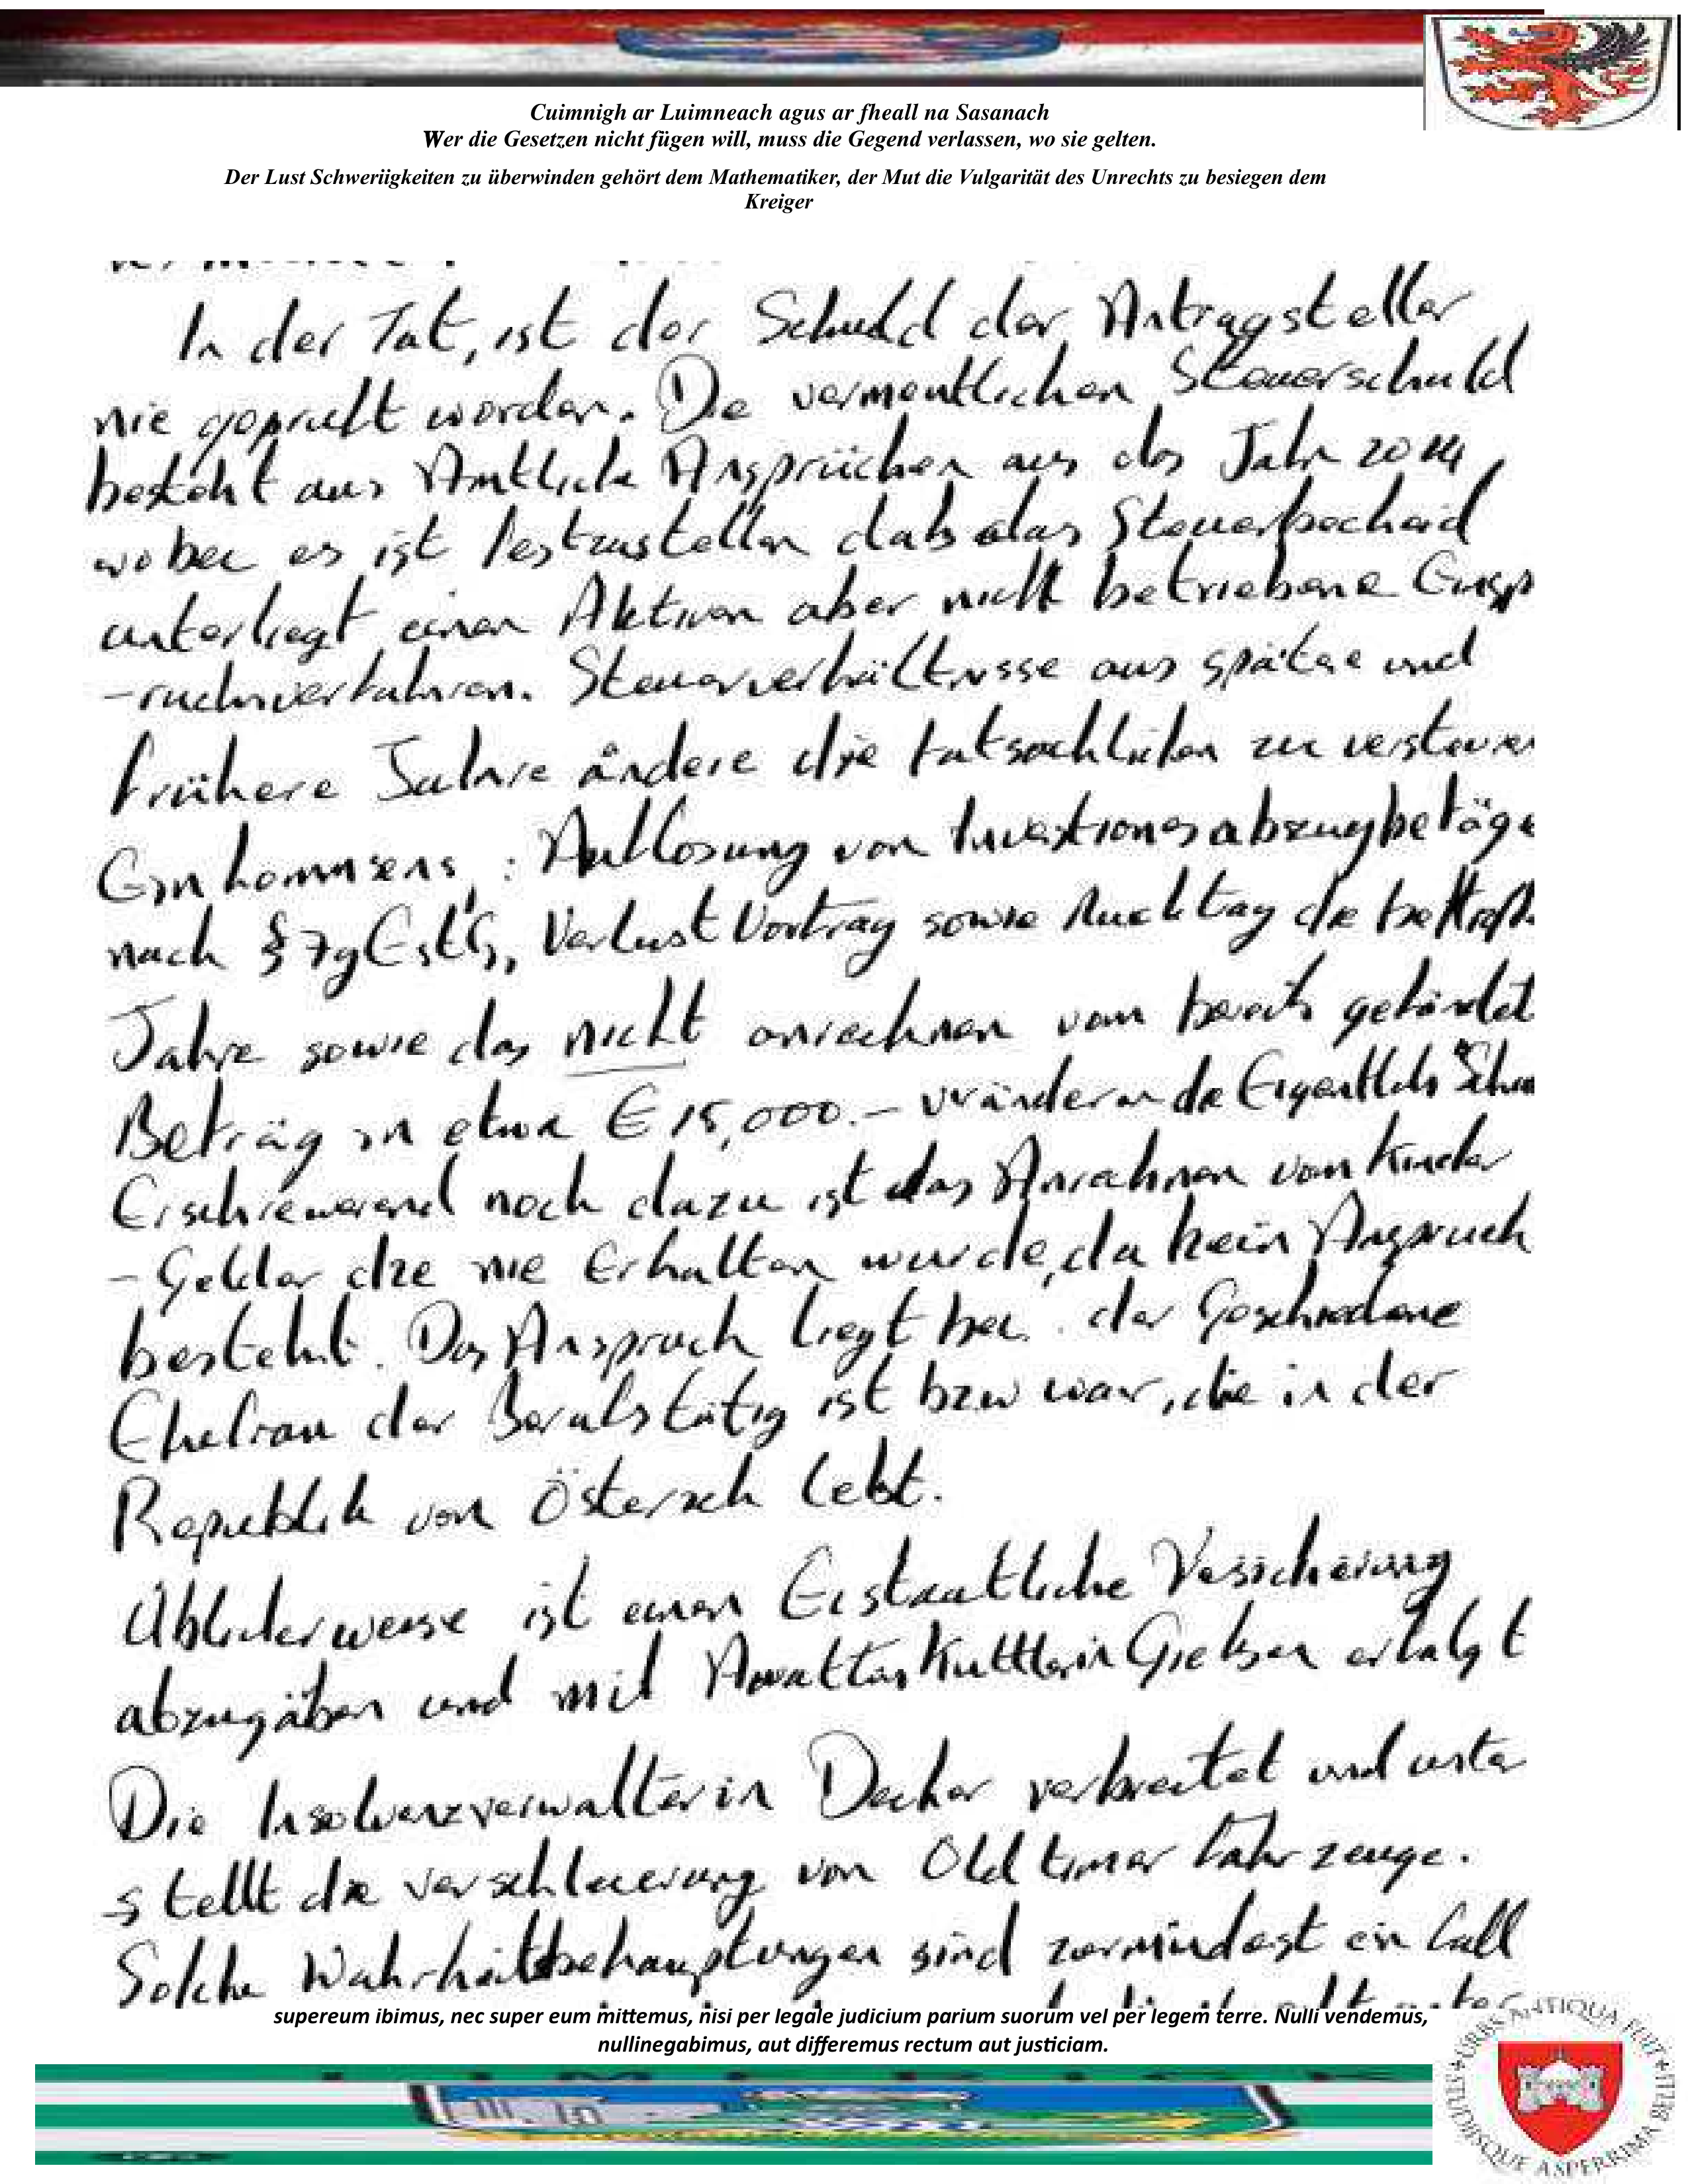 Cuimnigh ar Luimneach agus ar fheall na Sasanach
Wer die Gesetzen nicht fügen will, muss die Gegend verlassen, wo sie gelten.
Der Lust Schweriigkeiten zu überwinden gehört dem Mathematiker, der Mut die Vulgarität des Unrechts zu besiegen dem
Kreiger
In der Tat, ist der Schuld der Antragsteller
nie geprüft worden. Die vermentlichen Steuerschuld
besteht aus Amtliche Ansprüchen aus das Jahr 2014,
wobei es ist festzustellen daß das Steuerbecheid
unterliegt einen Aktiven aber nicht betriebene Einsp
-ruchsverfahren. Steuerverhältnisse aus spätere und
frühere Jahre ändere die tatsachlichen zu versteuer
Einkommens: Auflosung von Investionesabzugbetäge
nach § 7g EstG, Verlust Vortrag sowie Rucktag die betroff
Jahre sowie das nicht anrechnen vom bereits gefändet
Beträg in etwa € 15,000.- verändern die Eigentlich Schu
Erschrewerend noch dazu ist das Anrechnen von Kinder
-Gelder die nie Erhalten wurde, da kein Anspruch
besteht. Das Anspruch liegt bei der Geschiedene
Ehefrau der Berufstätig ist bzw war, die in der
Republik von Östereich lebt.
Üblicherweise ist einen Eistaatliche Vesicherung
abzugäben und mit Kuttler in Gießen erfolgt
Die Insolvenzverwalterin Decker verbreitet und unter
stellt die verschleuerung von Oldtimer fahrzeuge.
Solche Wahrheitbehauptungen sind zumindest ein fall
supereum ibimus, nec super eum mittemus, nisi per legale judicium parium suorum vel per legem terre. Nulli vendemus,
nullinegabimus, aut differemus rectum aut justiciam.
URBS ANTIQUA FUIT STUDIISQUE ASPERRIMA BELLI